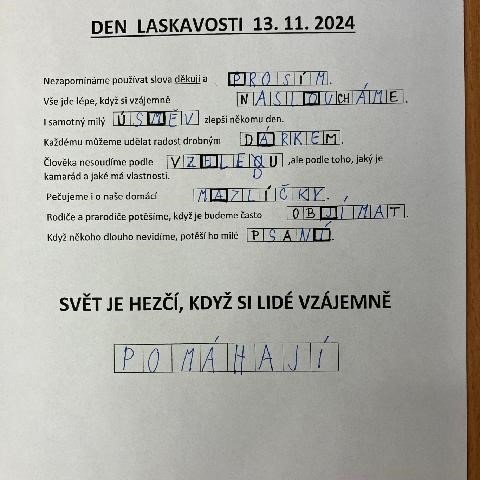 DEN LASKAVOSTI 13. 11. 2024
Nezapomínáme používat slova děkuji a PROSÍM.
Vše jde lépe, když si vzájemně NASLOUCHÁME.
I samotný milý ÚSMĚV zlepší někomu den.
Každému můžeme udělat radost drobným DÁRKEM.
Člověka nesoudíme podle VZHLEDU, ale podle toho, jaký je
kamarád a jaké má vlastnosti.
Pečujeme i o naše domácí MAZLÍČKY.
Rodiče a prarodiče potěšíme, když je budeme často OBJÍMAT.
Když někoho dlouho nevidíme, potěší ho milé PSANÍ.
SVĚT JE HEZČÍ, KDYŽ SI LIDÉ VZÁJEMNĚ
POMÁHAJÍ